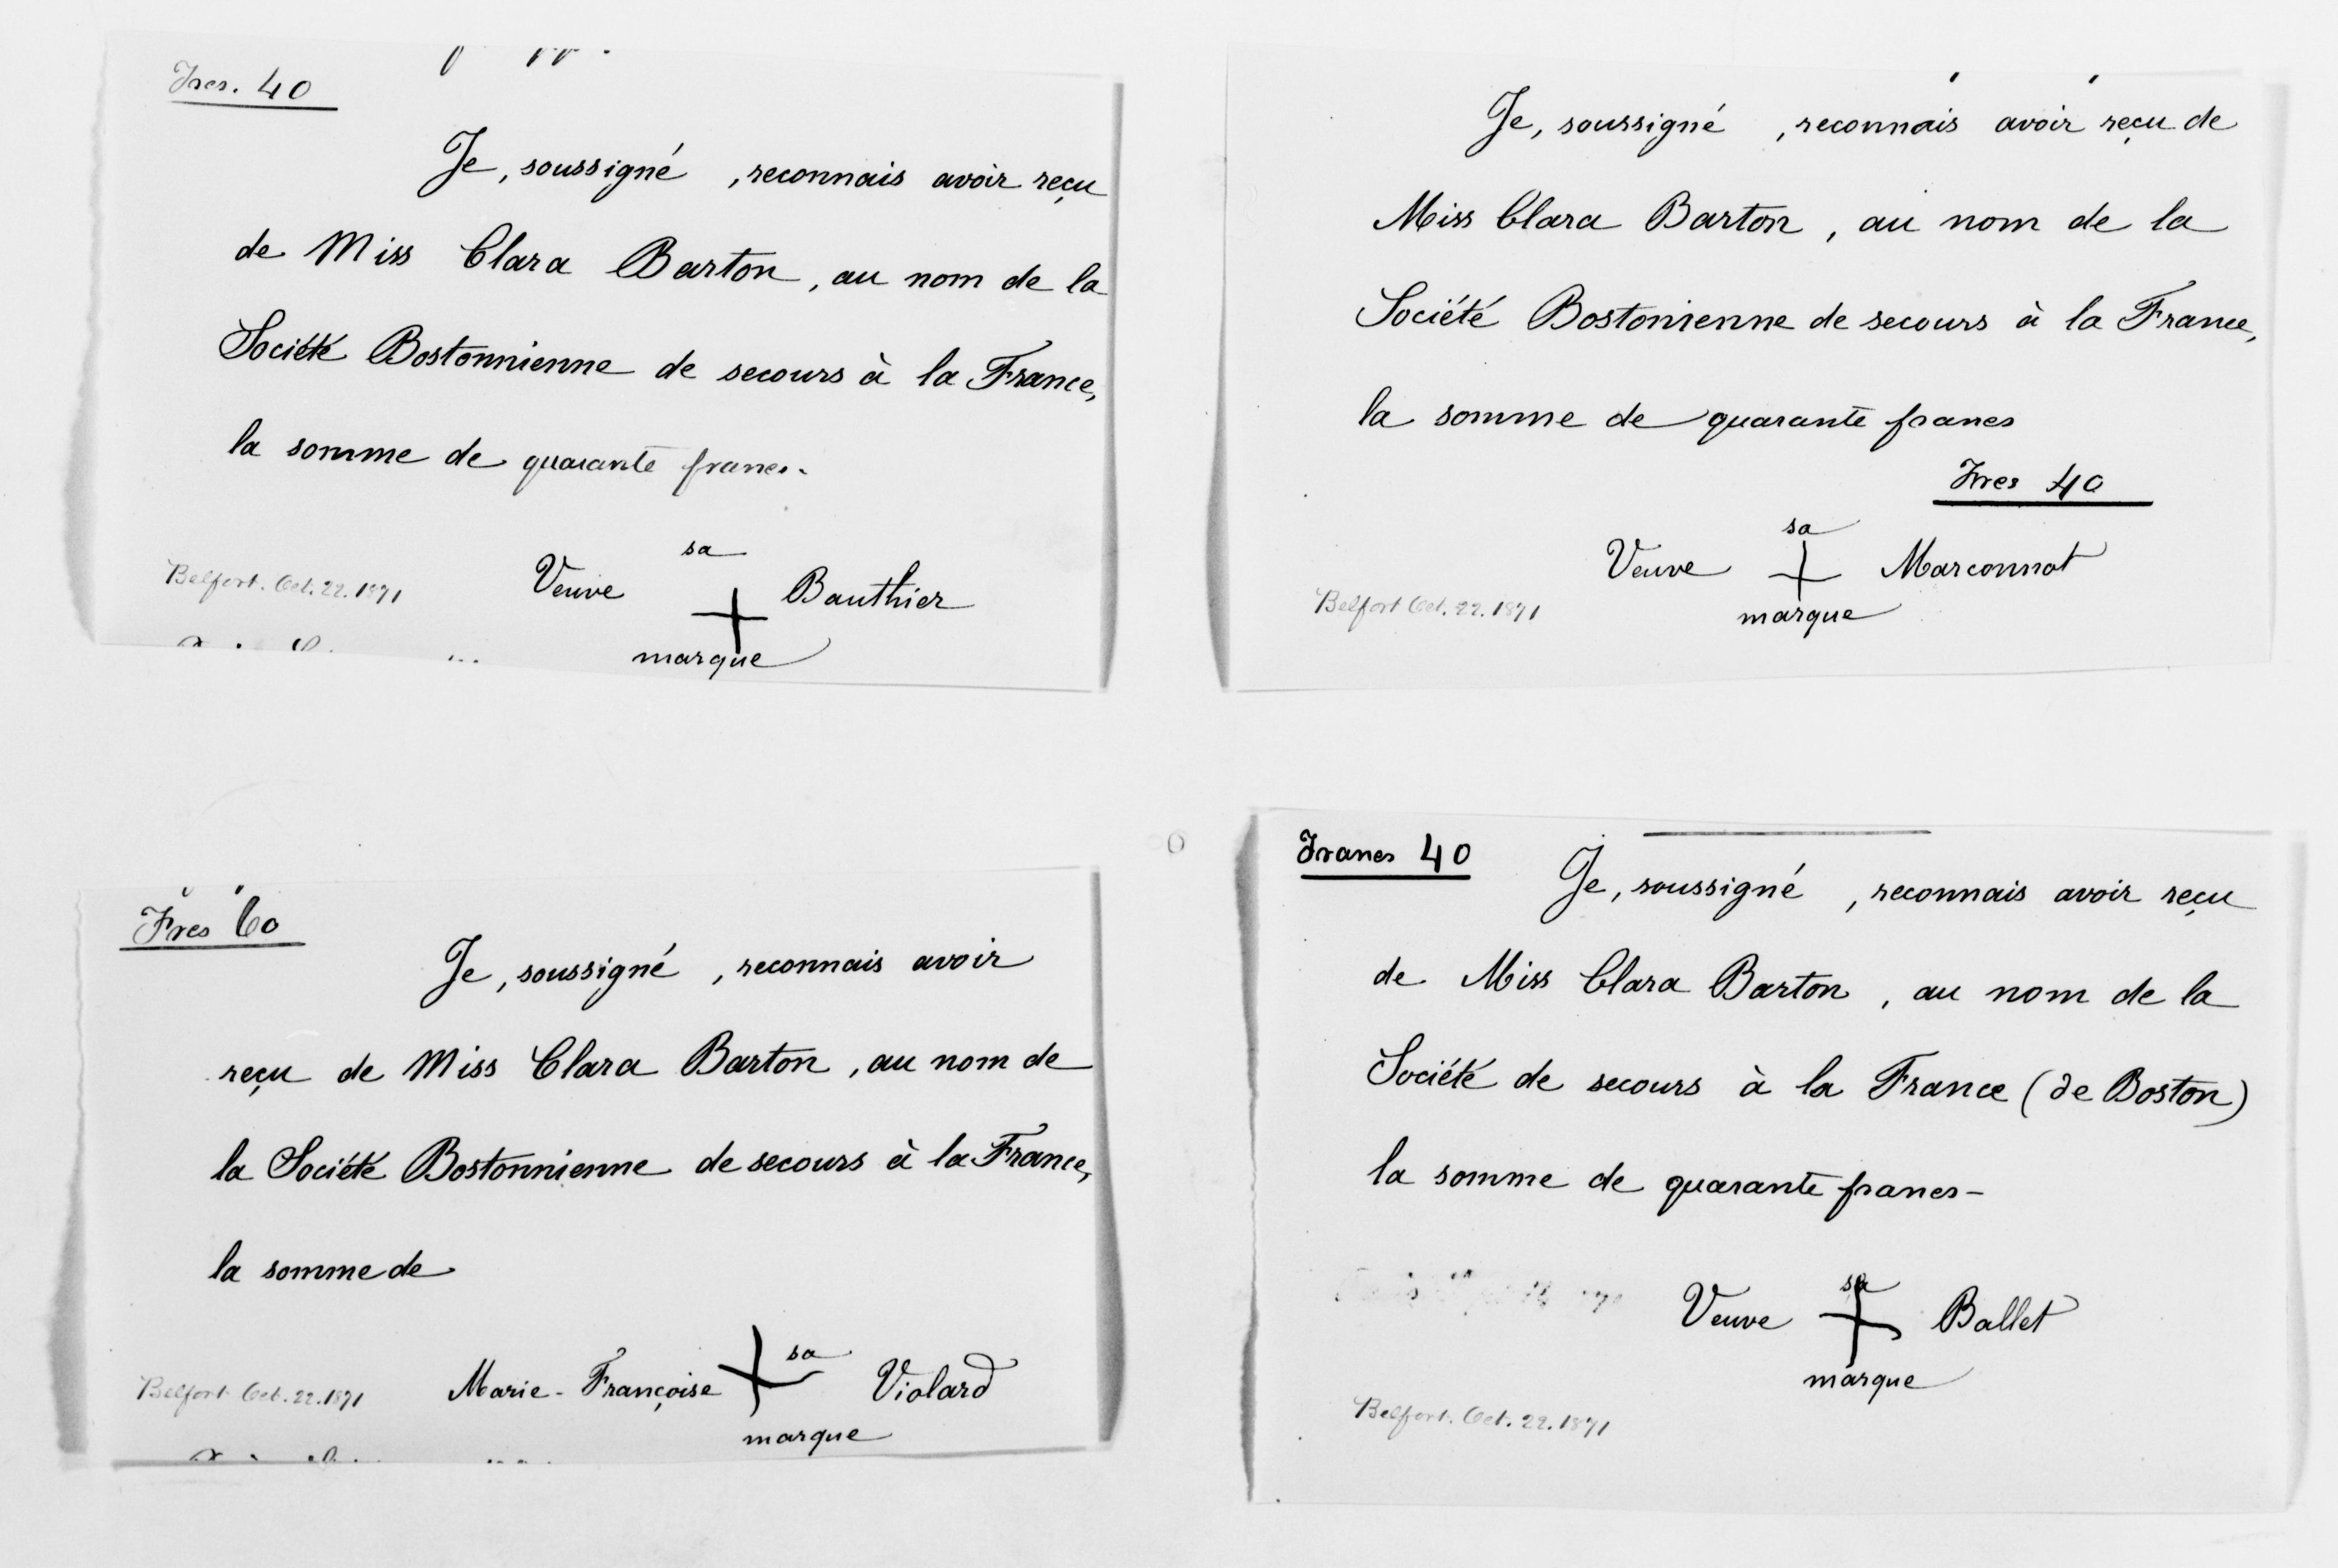 Frcs. 40
Je, soussigné , reconnais avoir reçu
de Miss Clara Barton, au nom de la
Société Bostonnienne de secours à la France,
la somme de quarante francs.
sa
Veuve + Bauthier
marque
Belfort. Oct. 22. 1871
Je, soussigné , reconnais avoir reçu de
Miss Clara Barton, au nom de la
Société Bostonienne de secours à la France,
la somme de quarante francs
Frcs 40
sa
Veuve + Marconnot
marque
Belfort Oct. 22. 1871
Frcs 60
Je, soussigné , reconnais avoir
reçu de Miss Clara Barton, au nom de
la Société Bostonnienne de secours à la France,
la somme de
sa
Marie-Françoise + Violard
marque
Belfort Oct. 22. 1871
Francs 40
Je, soussigné , reconnais avoir reçu
de Miss Clara Barton, au nom de la
Société de secours à la France (de Boston)
la somme de quarante francs-
sa
Veuve + Ballet
marque
Belfort. Oct. 22. 1871